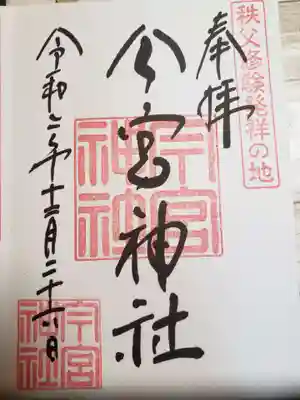 秩父修験発祥の地
奉拝
今宮神社
今宮神社
令和六年十二月二十六日
今宮神社